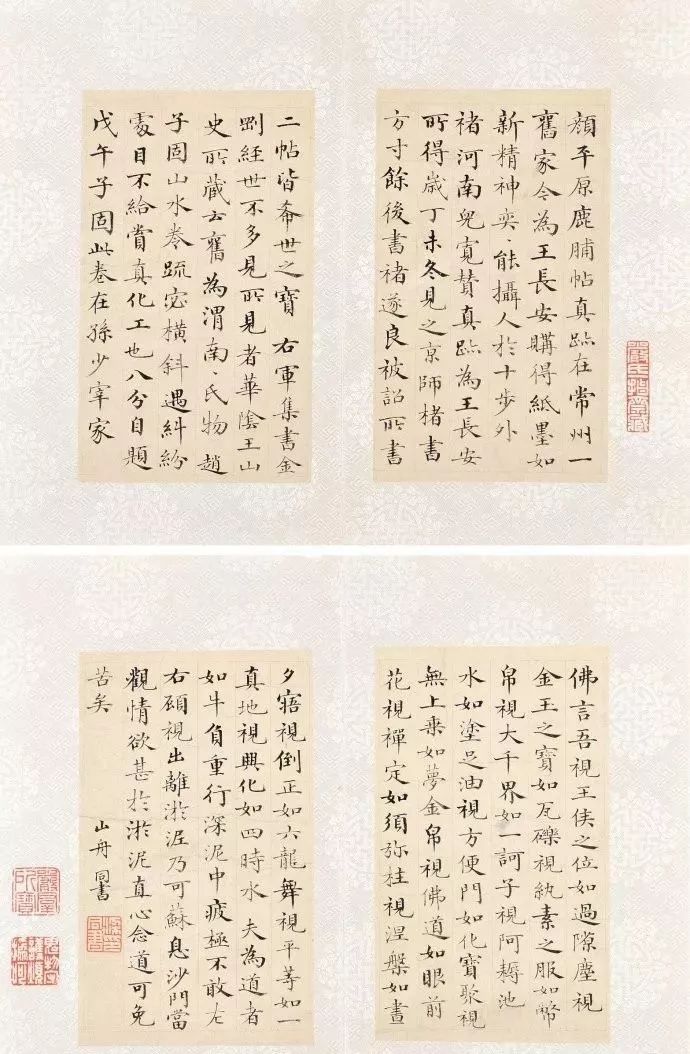 顔平原鹿脯帖真跡在常州一
舊家今為王長安購得紙墨如
新精神奕〻能攝人於十步外
褚河南兒寬贊真跡為王長安
所得歲丁未冬見之京師楮書
方寸餘後書褚遂良被詔所書
二帖皆希世之寶 右軍集書金
剛經世不多見所見者華陰王山
史所藏云舊為渭南〻氏物 趙
子固山水卷疏密橫斜遇糾紛
處目不給賞真化工也八分自題
戊午子固此卷在孫少宰家
佛言吾視王侯之位如過隙塵視
金玉之寶如瓦礫視紈素之服如幣
帛視大千界如一訶子視阿耨池
水如塗足油視方便門如化寶聚視
無上乗如夢金帛視佛道如眼前
花視禪定如須弥柱視涅槃如晝
夕寤視倒正如六龍舞視平等如一
真地視興化如四時水 夫為道者
如牛負重行深泥中疲極不敢左
右頋視出離淤泥乃可蘇息沙門當
觀情欲甚於淤泥直心念道可免
苦矣
山舟同書